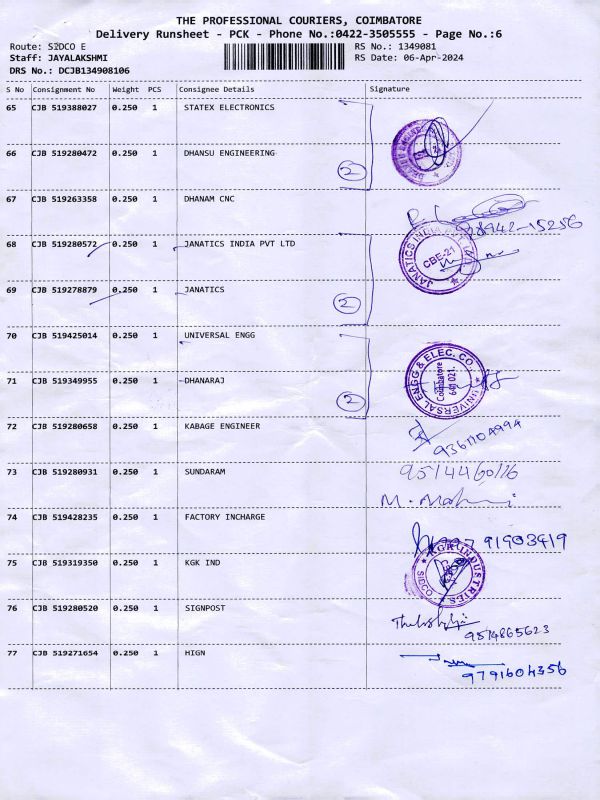 THE PROFESSIONAL COURIERS, COIMBATORE
Delivery Runsheet - PCK - Phone No.:0422-3505555 - Page No.:6
Route: SIDCO E
RS No.: 1349081
Staff: JAYALAKSHMI
RS Date: 06-Apr-2024
DRS No.: DCJB134908106
S No Consignment No Weight PCS Consignee Details Signature
65 CJB 519388027 0.250 1 STATEX ELECTRONICS
66 CJB 519280472 0.250 1 DHANSU ENGINEERING
2
67 CJB 519263358 0.250 1 DHANAM CNC
98942-15256
68 CJB 519280572 0.250 1 JANATICS INDIA PVT LTD
JANATICS INDIA PVT LTD
CBE-21
69 CJB 519278879 0.250 1 JANATICS
2
70 CJB 519425014 0.250 1 UNIVERSAL ENGG
UNIVERSAL ENGG & ELEC. CO.
Coimbatore
641 021.
71 CJB 519349955 0.250 1 DHANARAJ
2
72 CJB 519280658 0.250 1 KABAGE ENGINEER
9361104994
73 CJB 519280931 0.250 1 SUNDARAM
M.
74 CJB 519428235 0.250 1 FACTORY INCHARGE
75 CJB 519319350 0.250 1 KGK IND
INDUSTRIES
SIDCO
76 CJB 519280520 0.250 1 SIGNPOST
9514865623
77 CJB 519271654 0.250 1 HIGN
9791604356